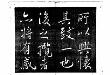 所以興懷
其致一也
後之攬者
亦將有感